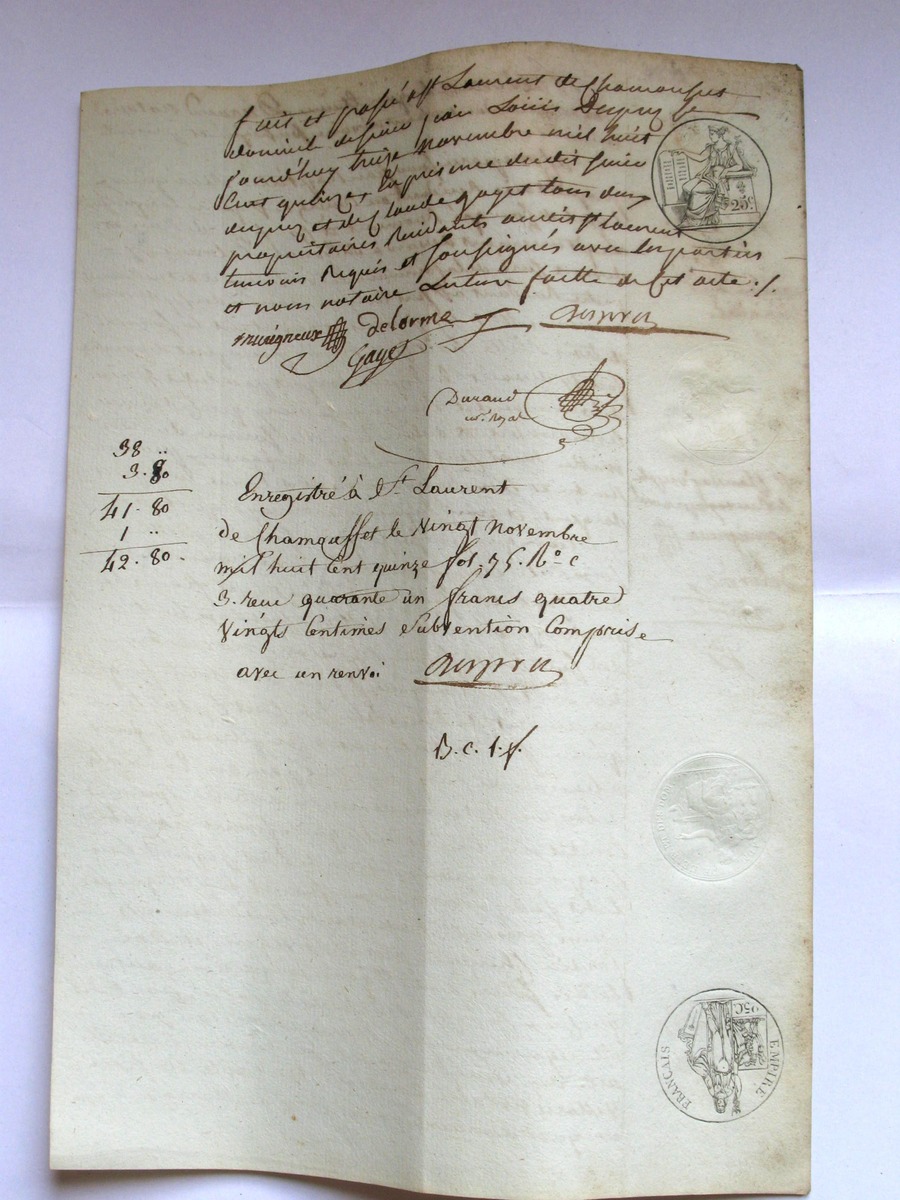 fait et passé a St Laurent de Chamousset
domicile de sieur jean Louis Dupuy le
jourd'huy treize novembre mil huit
Cent quinze, En présence dudit sieur
dupuy et de Claude gayet tous deux
propriétaires Residants audit St Laurent
temoins Requis et soussignés avec les parties
et nous notaire Lecture faitte de Cet acte ./.
delorme
Gayet
Durand
38 ..
3. 80
41. 80
1 ..
42. 80.
Enregistré à St. Laurent
de Chamousset le Vingt Novembre
mil huit Cent quinze fol. 75. Ro. c
3. reçu quarante un francs quatre
Vingts Centimes Subvention Comprise
avec un renvoi
B. c. 1. f.
25c
EMPIRE FRANÇAIS
25C